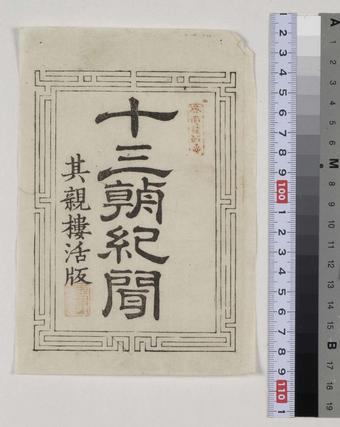 十三朝紀聞
其親樓活版
1 2 3 4 5 6 7 8 9 100 1 2 3 4 5 6 7 8 9 110 1
A 1 2 3 4 5 6 M 8 9 10 11 12 13 14 15 B 17 18 19